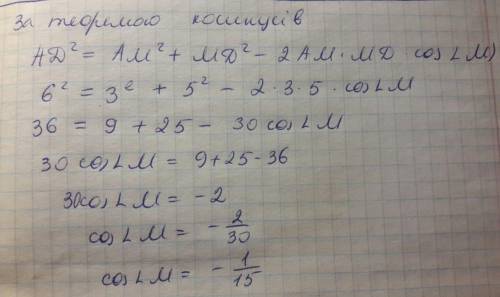 За теоремою косинусів
AD² = AM² + MD² - 2 AM · MD cos∠M
6² = 3² + 5² - 2 · 3 · 5 · cos∠M
36 = 9 + 25 - 30 cos∠M
30 cos∠M = 9 + 25 - 36
30cos∠M = - 2
cos∠M = - 2/30
cos∠M = - 1/15